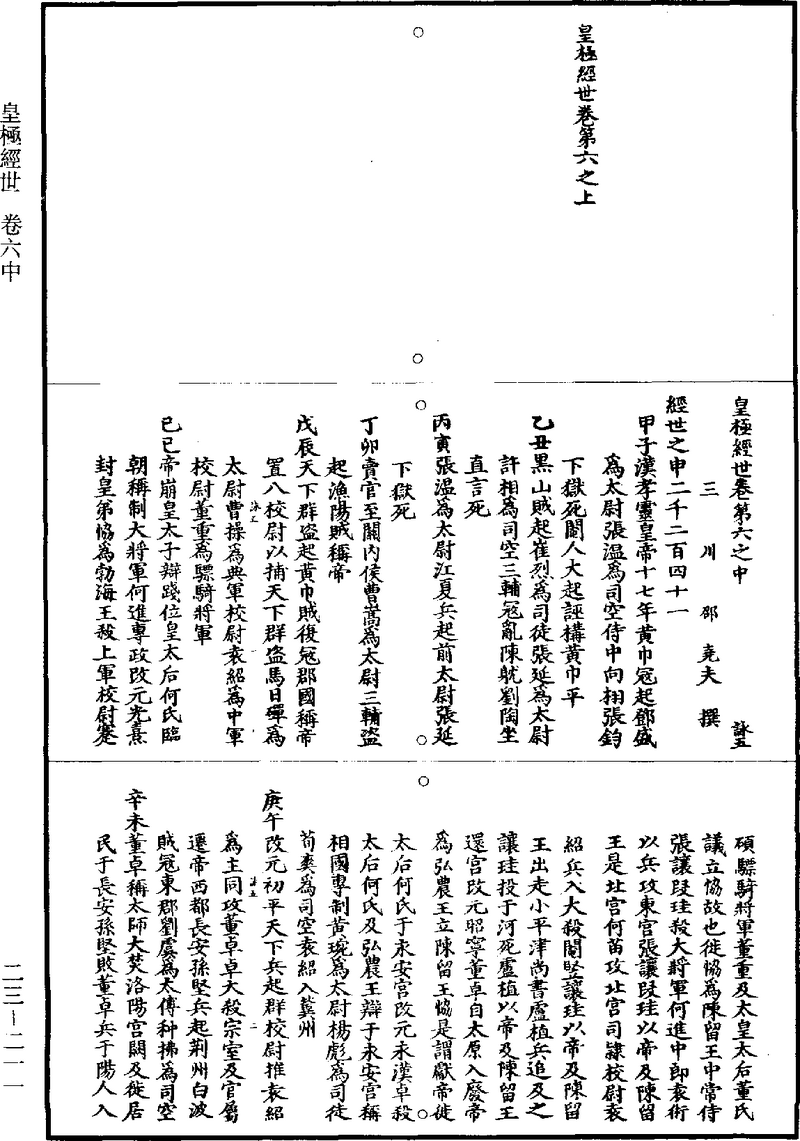 皇極經世卷第六之上
皇極經世卷第六之中 詠五
三川邵堯夫撰
經世之申二千二百四十一
甲子漢孝靈皇帝十七年黄巾冦起鄧盛
爲太尉張温爲司空侍中向栩張鈞
下獄死閹人大起誣構黄巾平
乙丑黒山賊起崔烈爲司徒張延爲太尉
許相爲司空三輔冦亂陳躭劉陶坐
直言死
丙寅張温爲太尉江夏兵起前太尉張延
下獄死
丁卯賣官至關内侯曹嵩爲太尉三輔盜
起漁陽賊稱帝
戊辰天下群盜起黄巾賊復冦郡國稱帝
置八校尉以捕天下群盜馬日磾爲
太尉曹操爲典軍校尉袁紹爲中軍
校尉董重爲驃騎將軍
己巳帝崩皇太子辯踐位皇太后何氏臨
朝稱制大將軍何進專政改元光熹
封皇弟恊爲勃海王殺上軍校尉蹇
碩驃騎將軍董重及太皇太后董氏
議立恊故也徙恊爲陳留王中常侍
張讓段珪殺大將軍何進中郎袁術
以兵攻東宫張讓段珪以帝及陳留
王是北宫何苗攻北宫司隷校尉袁
紹兵入大殺閹竪讓珪以帝及陳留
王出走小平津尚書盧植兵追及之
讓珪投于河死盧植以帝及陳留王
還宫改元昭寧董卓自太原入廢帝
爲弘農王立陳留王恊是謂獻帝徙
太后何氏于永安宫改元永漢卓殺
太后何氏及弘農王辯于永安宫稱
相國專制黄琬爲太尉楊彪爲司徒
荀爽爲司空袁紹入冀州
庚午改元初平天下兵起群校尉推袁紹
爲主同攻董卓卓大殺宗室及官屬
遷帝西都長安孫堅兵起荆州白波
賊冦東郡劉虞爲太傅种拂爲司空
辛未董卓稱太師大焚洛陽宫闕及徙居
民于長安孫堅敗董卓兵于陽人入
皇極經世 卷六中
二三-二一一